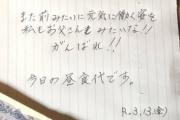 また前みたいに元気に働く姿を
私もお父さんもみたいな!!
がんばれ!!
今日の昼食代です。
R.3.13(金)